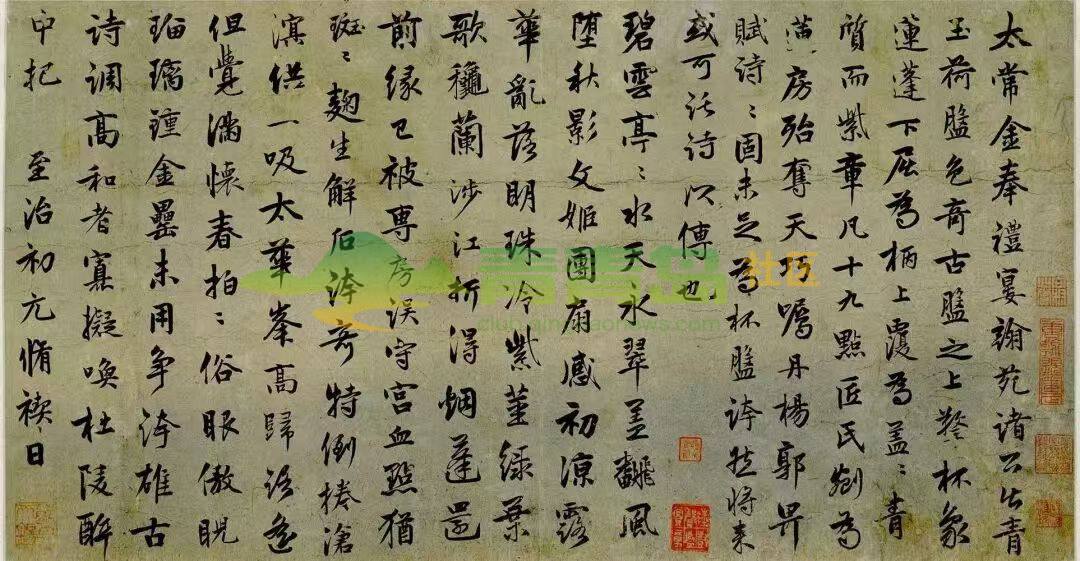 太常金奉禮宴翰苑諸公出青
玉荷盤色奇古盤之上擎杯象
蓮蓬下屈為柄上覆為蓋〻青
質而紫章凡十九點匠氏剜為
蓮房殆奪天巧囑丹楊郭畀
賦詩〻固未足為杯盤誇然將來
或可託詩以傳也
碧雲亭〻水天永翠蓋飜風
墮秋影文姬團扇感初涼露
華亂落明珠冷紫莖綠葉
歌穠蘭涉江折得烟蓬還
前緣已被專房误守宮血點猶
斑〻麹生解后誇奇特倒捲滄
溟供一吸太華峯高歸路遙
但覺滿懷春拍〻俗眼傲睨
瑠璃鍾金罍未用争誇雄古
詩調高和者寡擬喚杜陵醉
中把 至治初元脩禊日
青青岛社区
club.qingdaonews.com